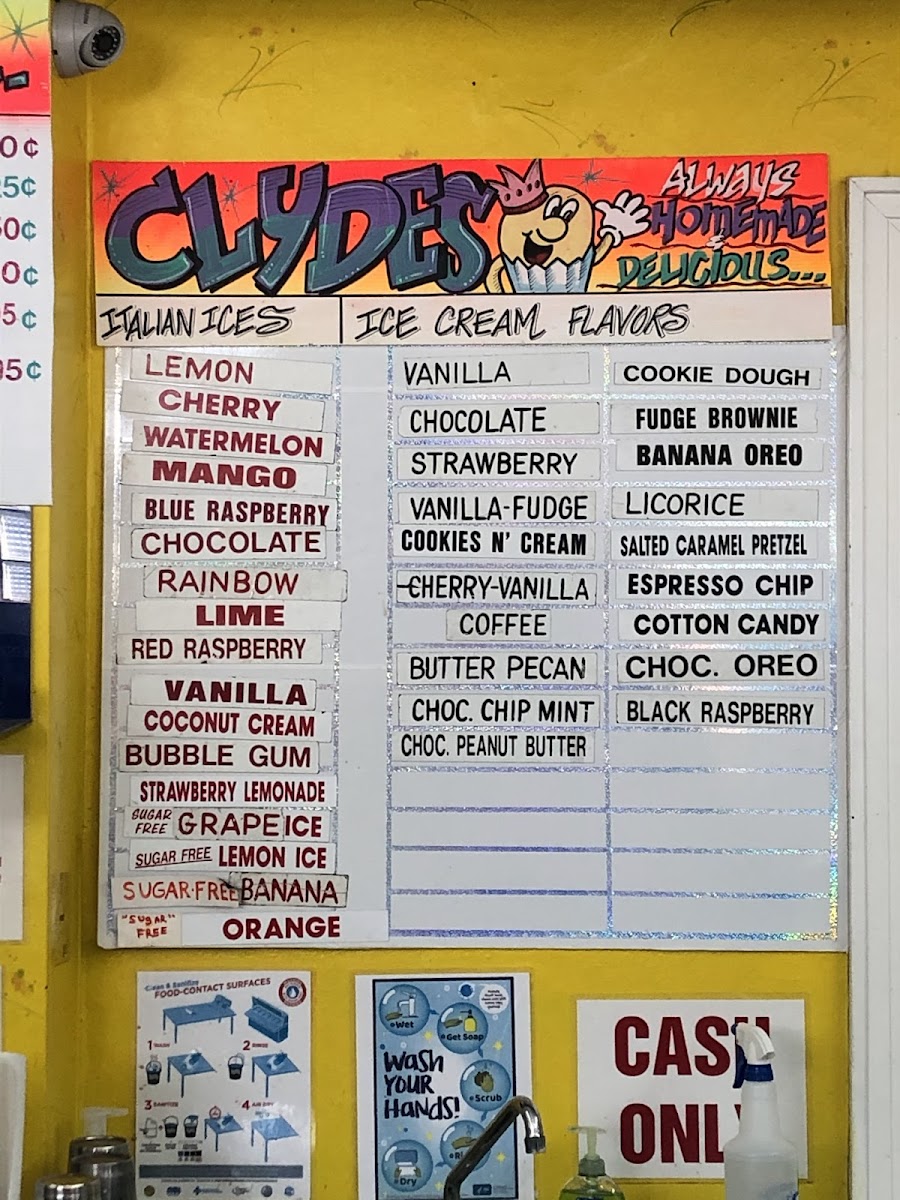 0¢
25¢
50¢
0¢
5¢
95¢
CLYDES
ALWAYS
HOMEMADE
&
DELICIOUS...
ITALIAN ICES
ICE CREAM FLAVORS
LEMON
CHERRY
WATERMELON
MANGO
BLUE RASPBERRY
CHOCOLATE
RAINBOW
LIME
RED RASPBERRY
VANILLA
COCONUT CREAM
BUBBLE GUM
STRAWBERRY LEMONADE
SUGAR FREE GRAPE ICE
SUGAR FREE LEMON ICE
SUGAR·FREE BANANA
"SUGAR" FREE ORANGE
VANILLA
CHOCOLATE
STRAWBERRY
VANILLA-FUDGE
COOKIES N' CREAM
CHERRY-VANILLA
COFFEE
BUTTER PECAN
CHOC. CHIP MINT
CHOC. PEANUT BUTTER
COOKIE DOUGH
FUDGE BROWNIE
BANANA OREO
LICORICE
SALTED CARAMEL PRETZEL
ESPRESSO CHIP
COTTON CANDY
CHOC. OREO
BLACK RASPBERRY
Clean & Sanitize
FOOD-CONTACT SURFACES
1 WASH
2 RINSE
3 SANITIZE
4 AIR DRY
Wet
Get Soap
Wash
YOUR
HANDS!
Scrub
Dry
CASH
ONLY